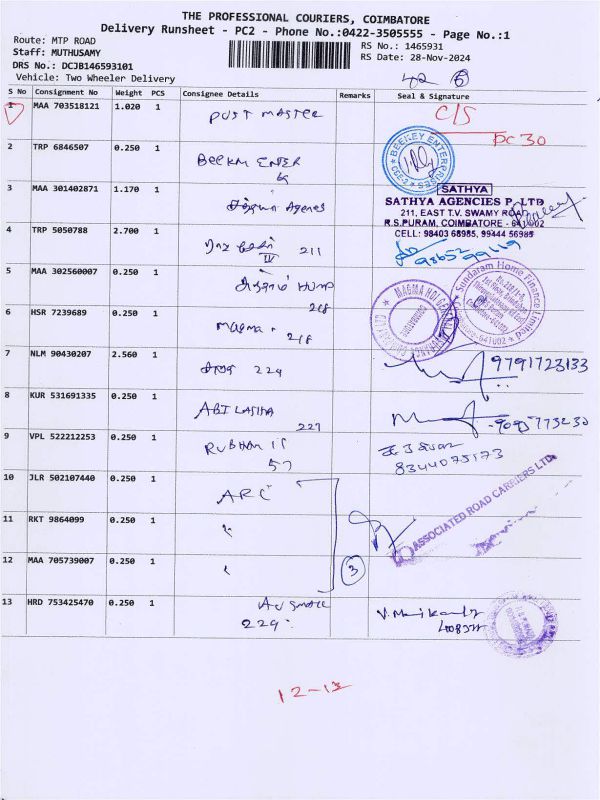 THE PROFESSIONAL COURIERS, COIMBATORE
Delivery Runsheet - PC2 - Phone No.:0422-3505555 - Page No.:1
Route: MTP ROAD
RS No.: 1465931
Staff: MUTHUSAMY
RS Date: 28-Nov-2024
DRS No.: DCJB146593101
Vehicle: Two Wheeler Delivery
S No Consignment No Weight PCS Consignee Details Remarks Seal & Signature
1 MAA 703518121 1.020 1 POST MASTER C/S
PC 30
2 TRP 6846507 0.250 1 BEEKM ENTER
BEEKEY ENTERPRISES
3 MAA 301402871 1.170 1
SATHYA
SATHYA AGENCIES P. LTD
211, EAST T.V. SWAMY ROAD
R.S.PURAM, COIMBATORE - 641002
CELL: 98403 68985, 99444 56985
4 TRP 5050788 2.700 1 211
5 MAA 302560007 0.250 1
218
Sundaram Home Finance Limited
6 HSR 7239689 0.250 1 Magma
218
MAGMA HDI GENERAL
7 NLM 90430207 2.560 1 229 9791723133
8 KUR 531691335 0.250 1
227
9 VPL 522212253 0.250 1
57
8344075173
10 JLR 502107440 0.250 1 ARC
ASSOCIATED ROAD CARRIERS LTD
11 RKT 9864099 0.250 1 "
12 MAA 705739007 0.250 1 "
3
13 HRD 753425470 0.250 1
229
12-13